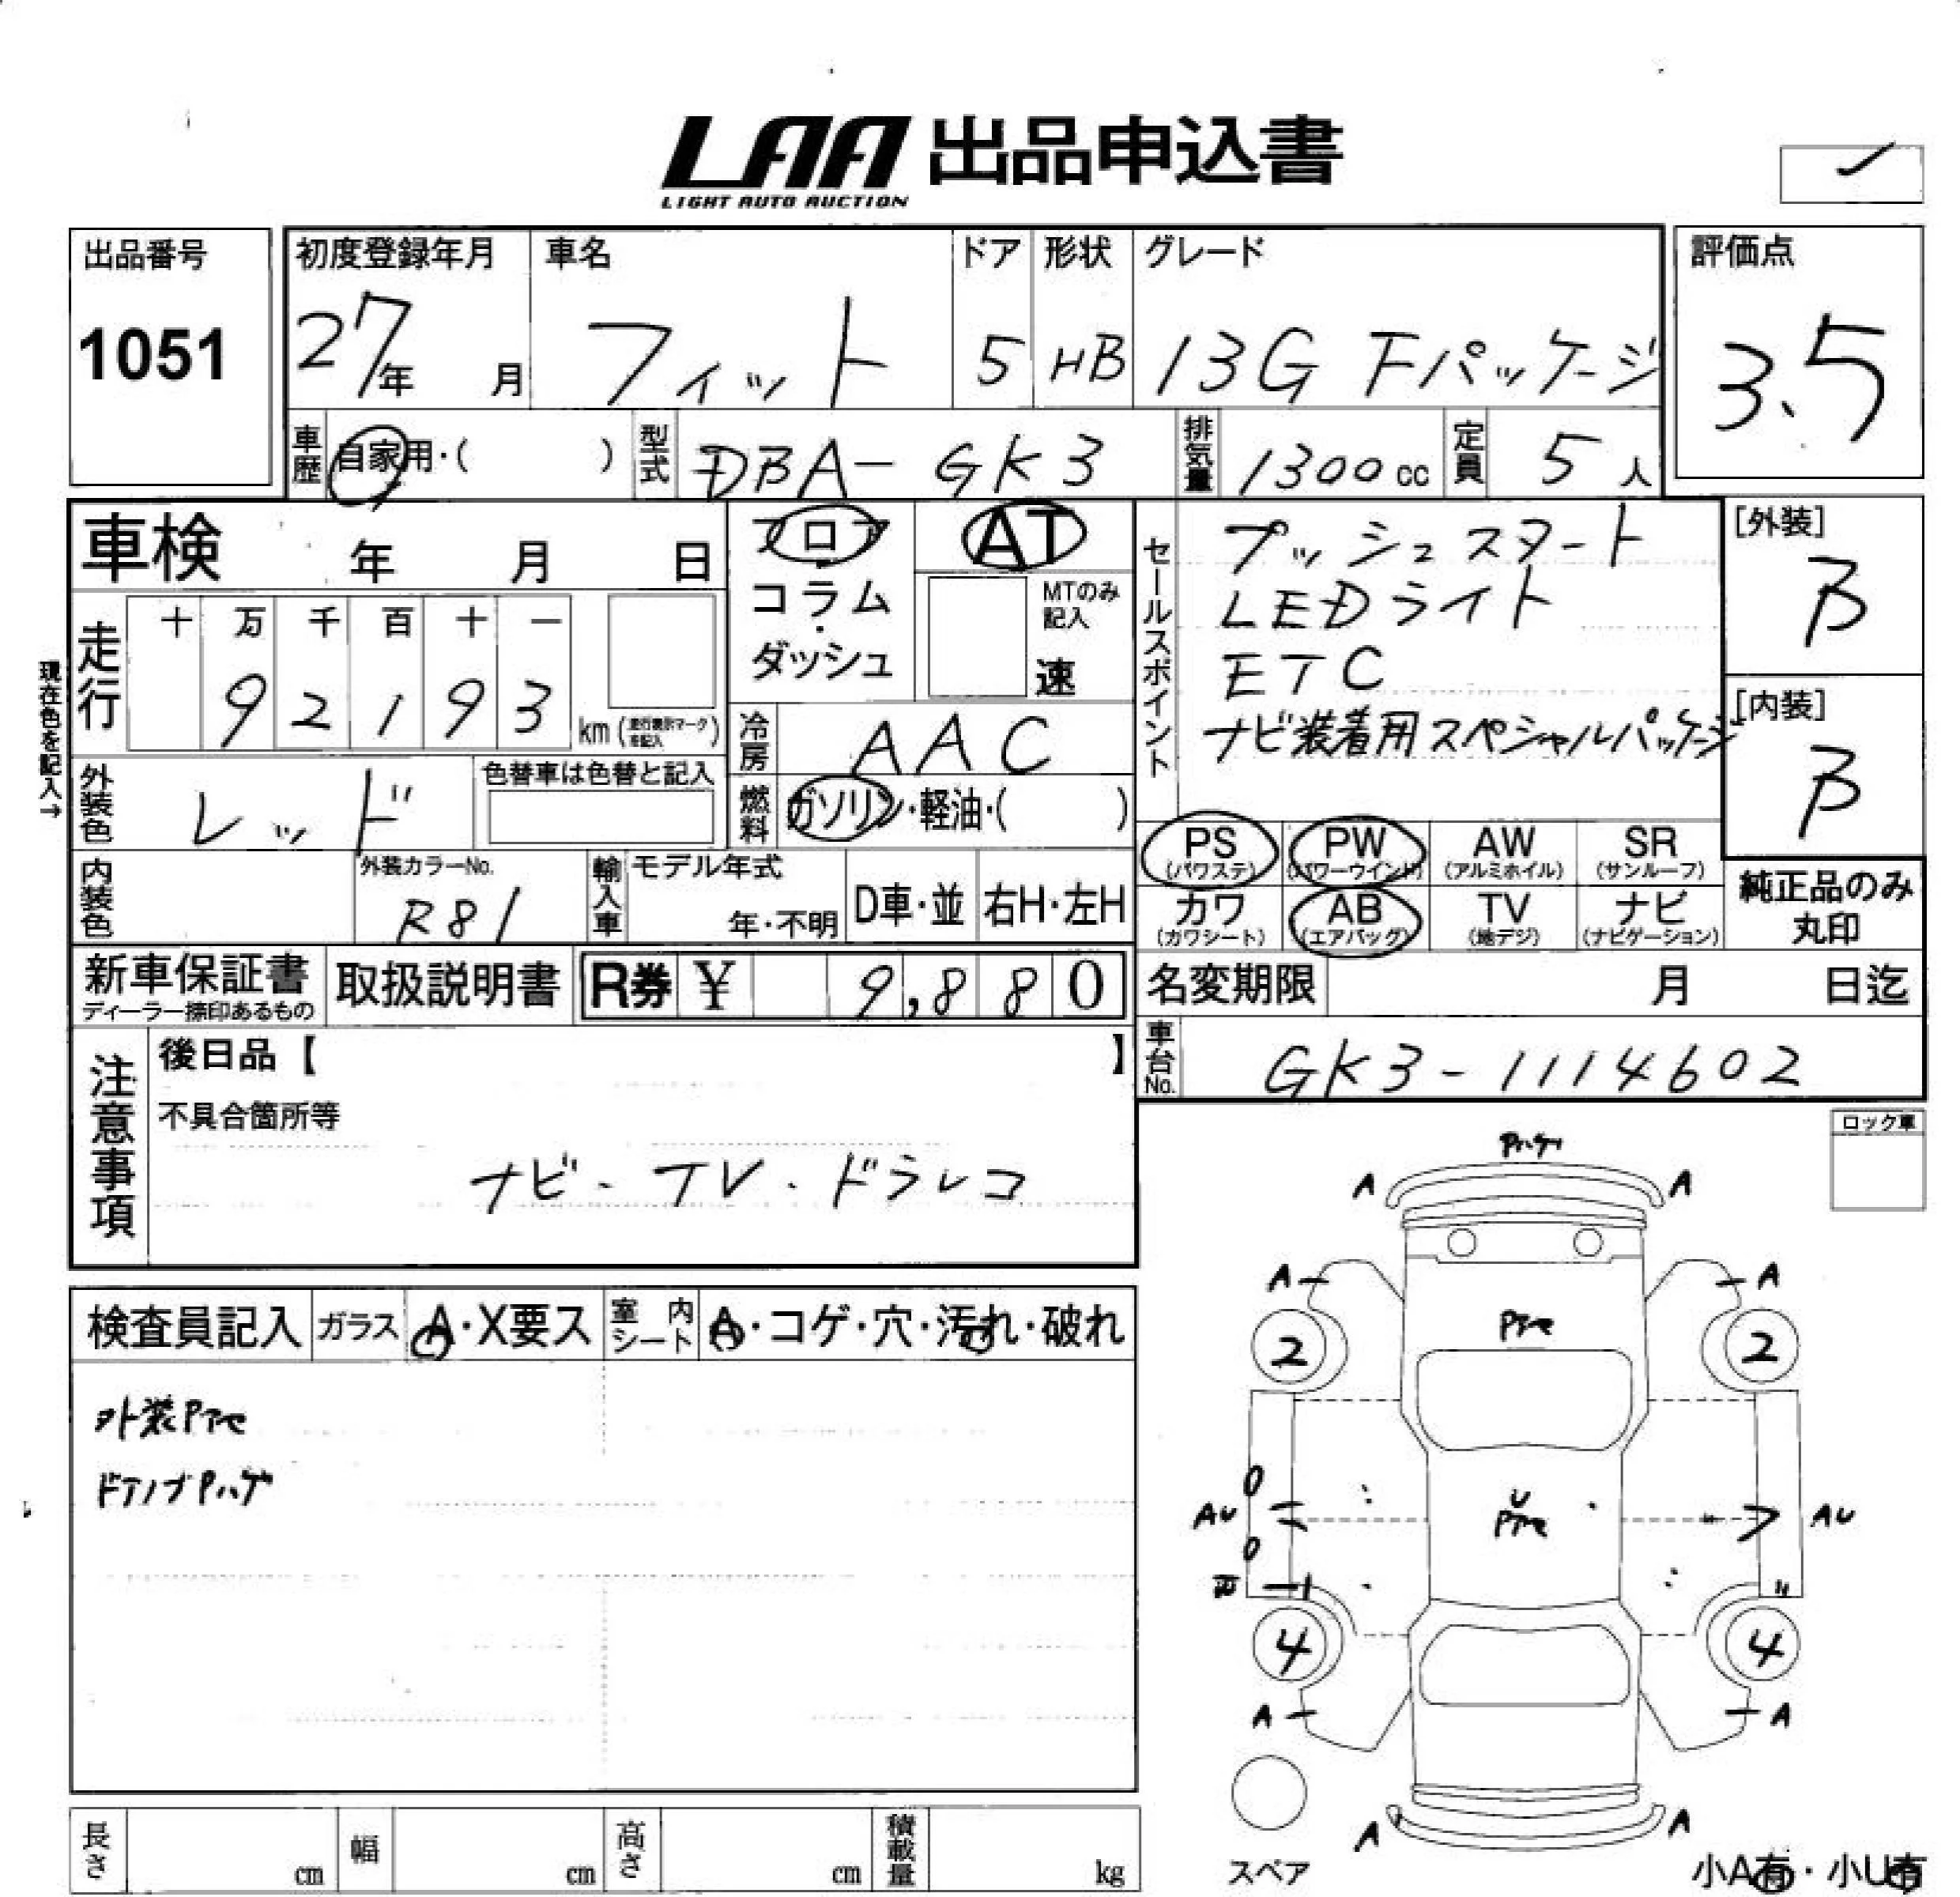 LAA 出品申込書
LIGHT AUTO AUCTION
出品番号
1051
初度登録年月
27年 月
車名
フィット
ドア
5
形状
HB
グレード
13G Fパッケージ
評価点
3.5
車歴 自家用・( )
型式 DBA-GK3
排気量 1300cc
定員 5人
車検 年 月 日
フロア
コラム
・
ダッシュ
AT
MTのみ
記入
速
セールスポイント
プッシュスタート
LEDライト
ETC
ナビ装着用スペシャルパッケージ
[外装]
B
[内装]
B
現在色を記入→
走行
十 万 千 百 十 一
9 2 1 9 3
km(走行表示マークを記入)
冷房 AAC
外装色 レッド
色替車は色替と記入
燃料 ガソリン・軽油・( )
PS (パワステ)
PW (パワーウインド)
AW (アルミホイル)
SR (サンルーフ)
カワ (カワシート)
AB (エアバッグ)
TV (地デジ)
ナビ (ナビゲーション)
純正品のみ
丸印
内装色
外装カラーNo.
R81
輸入車
モデル年式
年・不明
D車・並
右H・左H
新車保証書
ディーラー捺印あるもの
取扱説明書
R券 ¥ 9,880
名変期限 月 日迄
車台No. GK3-1114602
注意事項
後日品【 】
不具合箇所等
ナビ・TV・ドラレコ
ロック車
検査員記入
ガラス A・X要ス
室内シート A・コゲ・穴・汚れ・破れ
外装Pヤケ
ドアノブPハゲ
Pハゲ
A A
A A
Pヤケ
2 2
U
Pヤケ
AU AU
4 4
A A
A A
スペア
小A有・小U有
長さ cm
幅 cm
高さ cm
積載量 kg